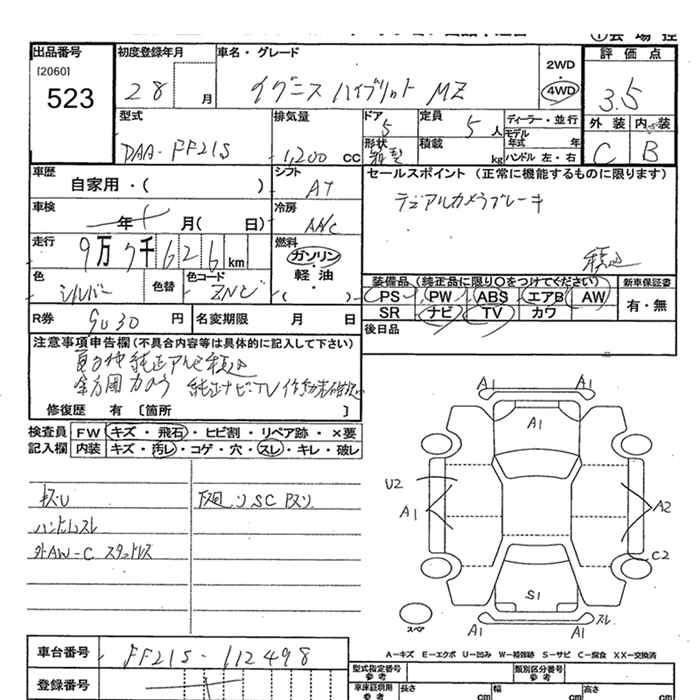 出品番号 初度登録年月 車名・グレード 2WD ・ 4WD 評価点
[2060]
523
28 月 イグニス ハイブリット MZ 3.5
型式 排気量 ドア 定員 ディーラー・並行 外装 内装
DAA-FF21S 1,200 cc 5 5人 モデル年式 年 C B
形状 積載 kg ハンドル 左・右
車歴 自家用・( ) シフト AT セールスポイント (正常に機能するものに限ります)
車検 年 月( 日) 冷房 AAC デュアルカメラブレーキ
走行 9万7千626km 燃料 ガソリン・軽油・( ) 積込
色 シルバー 色替 色コード ZNC
装備品 (純正品に限り〇をつけてください) 新車保証書
PS PW ABS エアB AW 有・無
SR ナビ TV カワ
R券 9030 円 名変期限 月 日 後日品
注意事項申告欄(不具合内容等は具体的に記入して下さい)
純正アルミ積込
全方囲カメラ 純正ナビ・TV
修復歴 有 [箇所 ]
検査員 FW キズ・飛石・ヒビ割・リペア跡・×要
記入欄 内装 キズ・汚レ・コゲ・穴・スレ・キレ・破レ
キズU 下廻リSC Bスリ
ハンドルスレ
外AW-C スタットレス
A1 A1
A1
U2
A1 A2
C2
S1
スペア A1 A1 スレ
A-キズ E-エクボ U-凹み W-補修跡 S-サビ C-腐食 XX-交換済
車台番号 FF21S-112498
型式指定番号 参考 類別区分番号 参考
登録番号 車庫証明用 参考 長さ cm 幅 cm 高さ cm